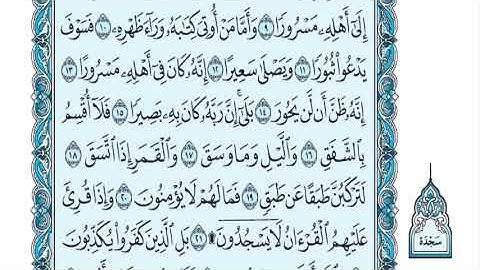 إِلَىٰٓ أَهْلِهِۦ مَسْرُورًا ٩ وَأَمَّا مَنْ أُوتِيَ كِتَٰبَهُۥ وَرَآءَ ظَهْرِهِۦ ١٠ فَسَوْفَ
يَدْعُوا۟ ثُبُورًا ١١ وَيَصْلَىٰ سَعِيرًا ١٢ إِنَّهُۥ كَانَ فِىٓ أَهْلِهِۦ مَسْرُورًا ١٣
إِنَّهُۥ ظَنَّ أَن لَّن يَحُورَ ١٤ بَلَىٰٓ إِنَّ رَبَّهُۥ كَانَ بِهِۦ بَصِيرًا ١٥ فَلَآ أُقْسِمُ
بِٱلشَّفَقِ ١٦ وَٱلَّيْلِ وَمَا وَسَقَ ١٧ وَٱلْقَمَرِ إِذَا ٱتَّسَقَ ١٨
لَتَرْكَبُنَّ طَبَقًا عَن طَبَقٍ ١٩ فَمَا لَهُمْ لَا يُؤْمِنُونَ ٢٠ وَإِذَا قُرِئَ
عَلَيْهِمُ ٱلْقُرْءَانُ لَا يَسْجُدُونَ ۩ ٢١ بَلِ ٱلَّذِينَ كَفَرُوا۟ يُكَذِّبُونَ
سَجْدَة